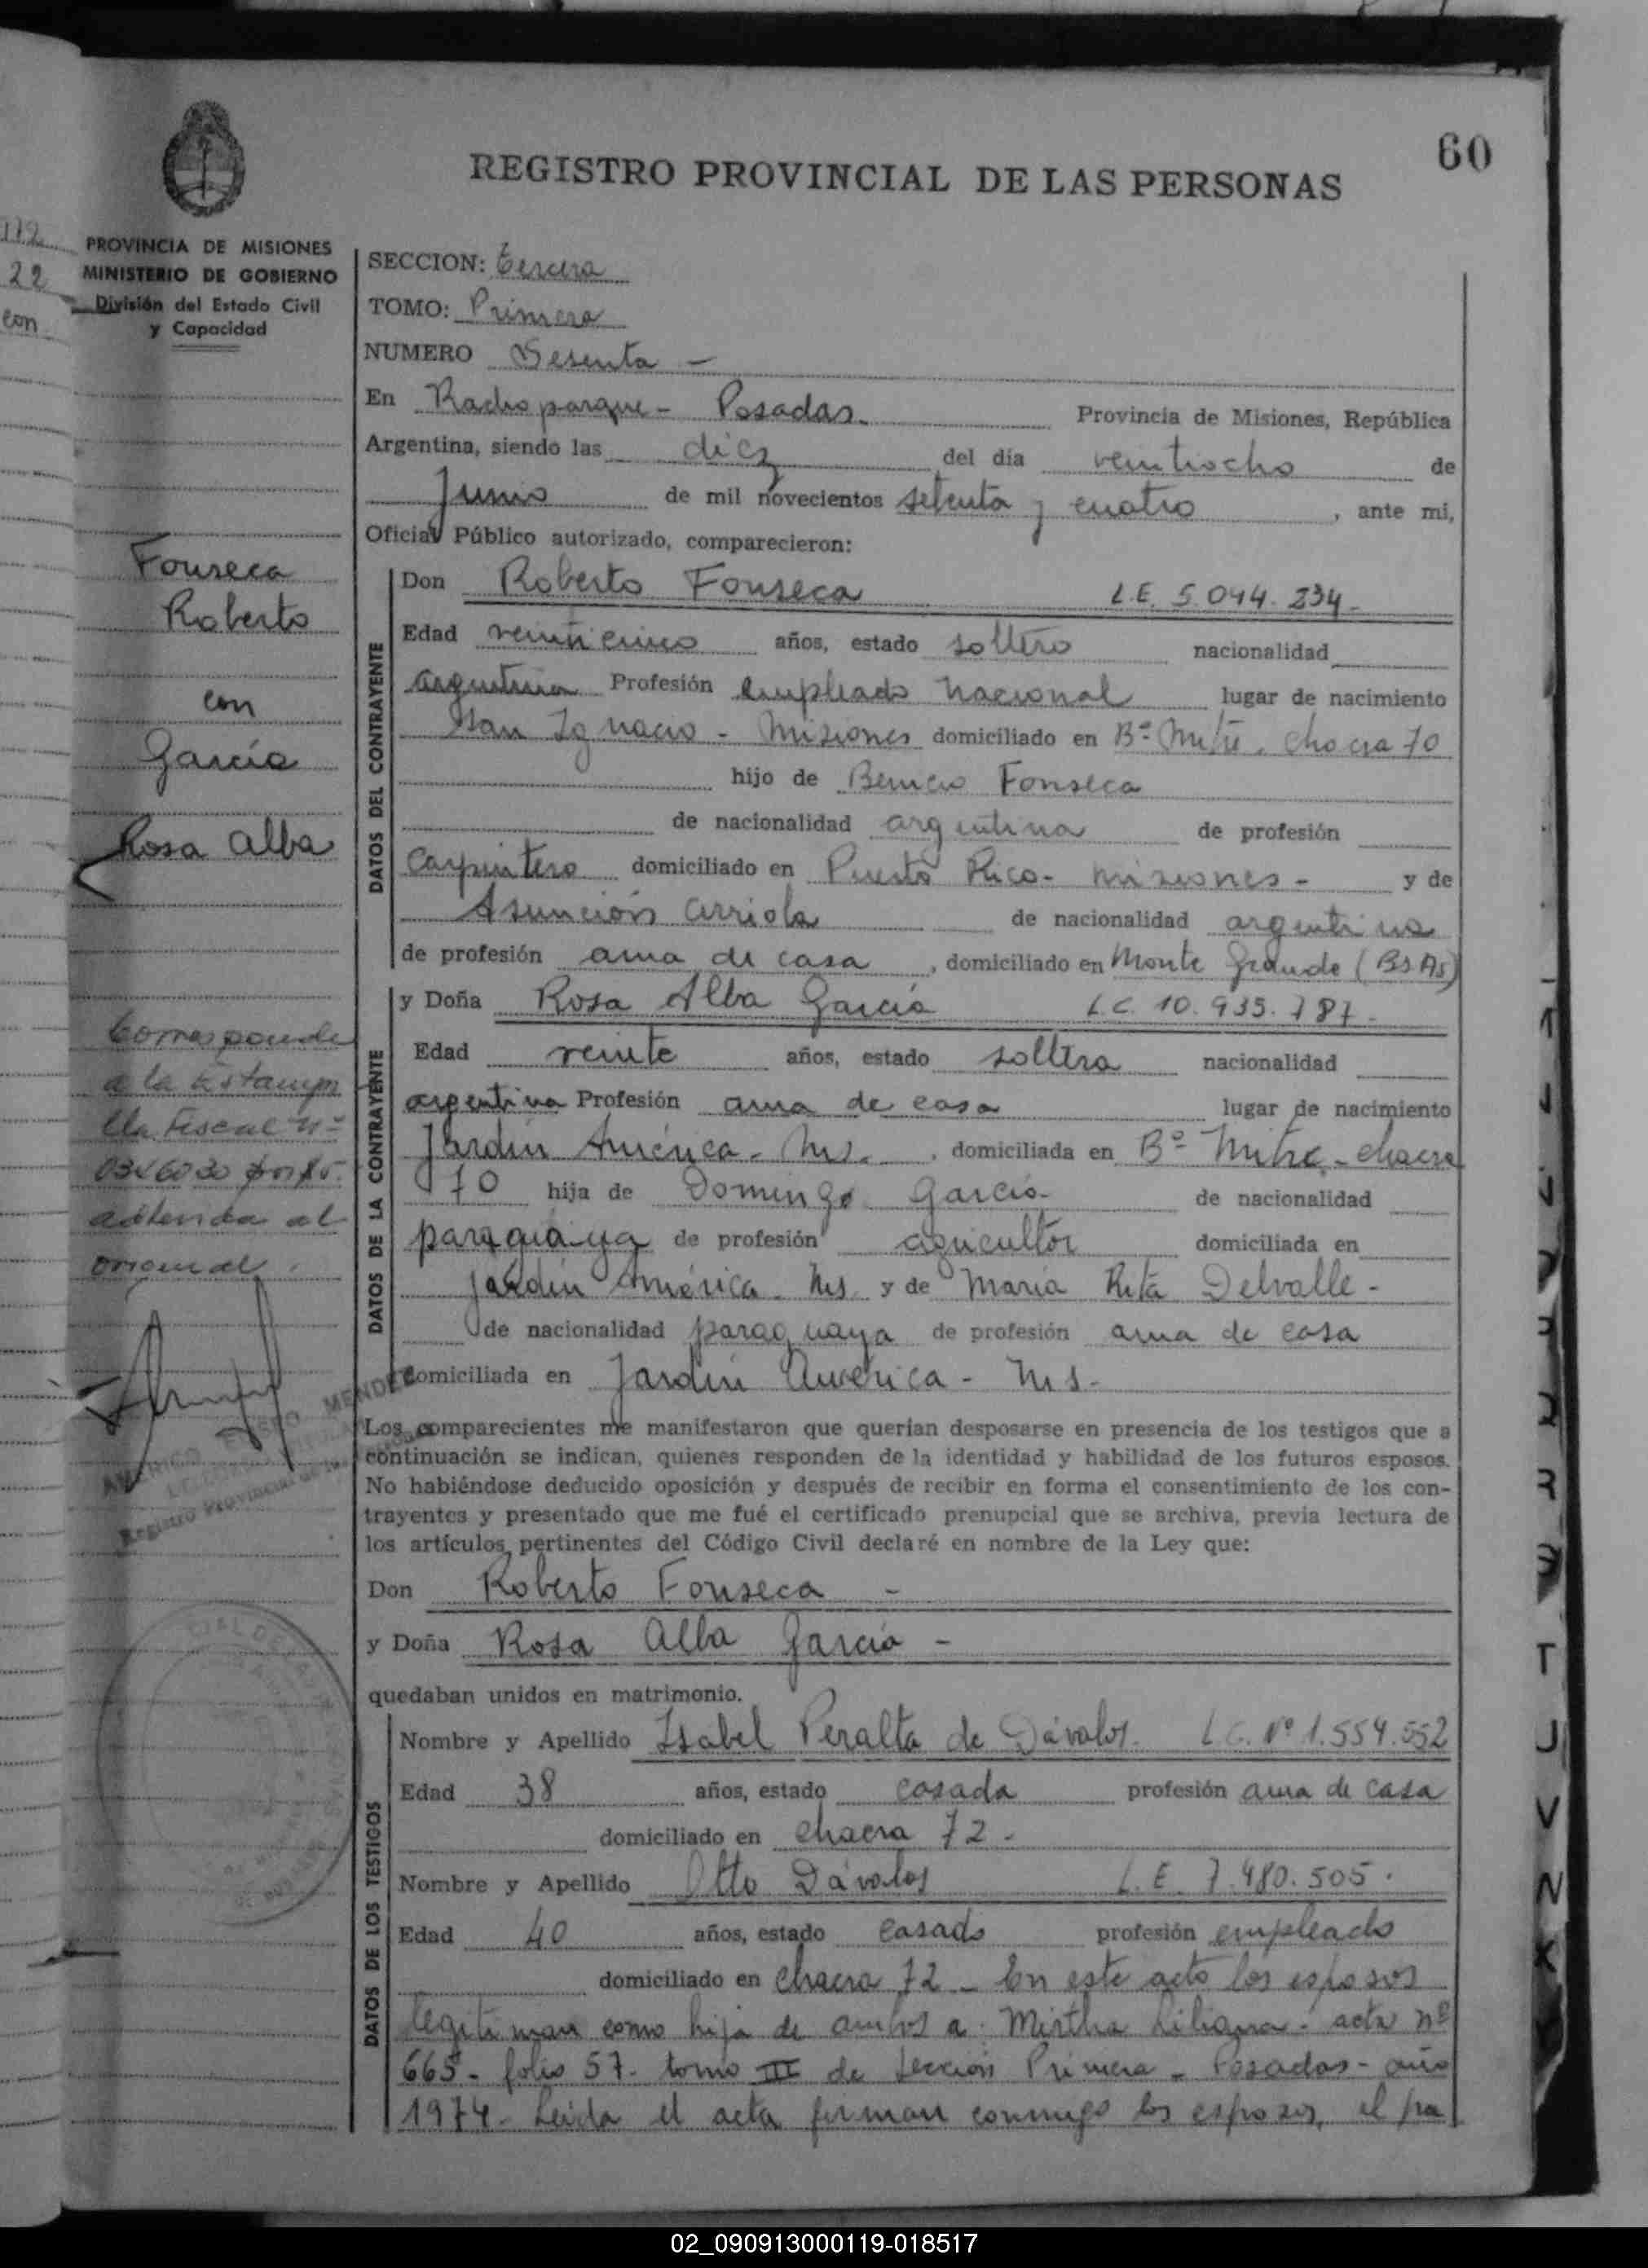 60
REGISTRO PROVINCIAL DE LAS PERSONAS
112
22
con
PROVINCIA DE MISIONES
MINISTERIO DE GOBIERNO
División del Estado Civil
y Capacidad
SECCION: tercera
TOMO: Primero
NUMERO Sesenta -
En Radioparque - Posadas. Provincia de Misiones, República
Argentina, siendo las diez del día veintiocho de
Junio de mil novecientos setenta y cuatro, ante mi,
Oficial Público autorizado, comparecieron:
Fonseca
Roberto
con
García
Rosa Alba
DATOS DEL CONTRAYENTE
Don Roberto Fonseca L.E. 5.044.234.-
Edad veinticinco años, estado soltero nacionalidad
argentina Profesión empleado nacional lugar de nacimiento
San Ignacio - Misiones domiciliado en Bº Mitre. chacra 70
hijo de Benicio Fonseca
de nacionalidad argentina de profesión
carpintero domiciliado en Puerto Rico - misiones - y de
Asunción Arriola de nacionalidad argentina
de profesión ama de casa, domiciliado en Monte Grande (Bs As)
DATOS DE LA CONTRAYENTE
y Doña Rosa Alba García L.C. 10.935.787.-
Edad veinte años, estado soltera nacionalidad
argentina Profesión ama de casa lugar de nacimiento
Jardín América - Ms. , domiciliada en Bº Mitre - chacra
70 hija de Domingo García de nacionalidad
paraguaya de profesión agricultor domiciliada en
Jardín América - Ms. y de María Rita Delvalle -
de nacionalidad paraguaya de profesión ama de casa
domiciliada en Jardín América - Ms.-
Corresponde
a la Estampi
lla Fiscal nº
adherida al
original.
MENDEZ
Registro Provincial de las
Los comparecientes me manifestaron que querían desposarse en presencia de los testigos que a
continuación se indican, quienes responden de la identidad y habilidad de los futuros esposos.
No habiéndose deducido oposición y después de recibir en forma el consentimiento de los con-
trayentes y presentado que me fué el certificado prenupcial que se archiva, previa lectura de
los artículos pertinentes del Código Civil declaré en nombre de la Ley que:
Don Roberto Fonseca -
y Doña Rosa Alba García -
quedaban unidos en matrimonio.
DATOS DE LOS TESTIGOS
Nombre y Apellido Isabel Peralta de Dávalos. L.C. Nº 1.554.552
Edad 38 años, estado casada profesión ama de casa
domiciliado en chacra 72.
Nombre y Apellido Otto Dávalos L.E. 7.480.505.
Edad 40 años, estado casado profesión empleado
domiciliado en chacra 72 - En este acto los esposos
legitiman como hija de ambos a: Mirtha Liliana - acta nº
665 - folio 57 - tomo III de Sección Primera - Posadas - año
1974 - Leída el acta firman conmigo los esposos, el pa
02_090913000119-018517